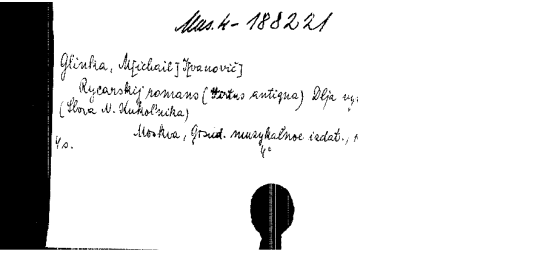 Mus. 4 - 188221
Glinka, M[ichail] I[vanovič]
Rycarskij romans (Virtus antiqua) Dlja
(Slova N. Kukol'nika)
Moskva, Gosud. muzykal'noe izdat.,
4 s. 4°